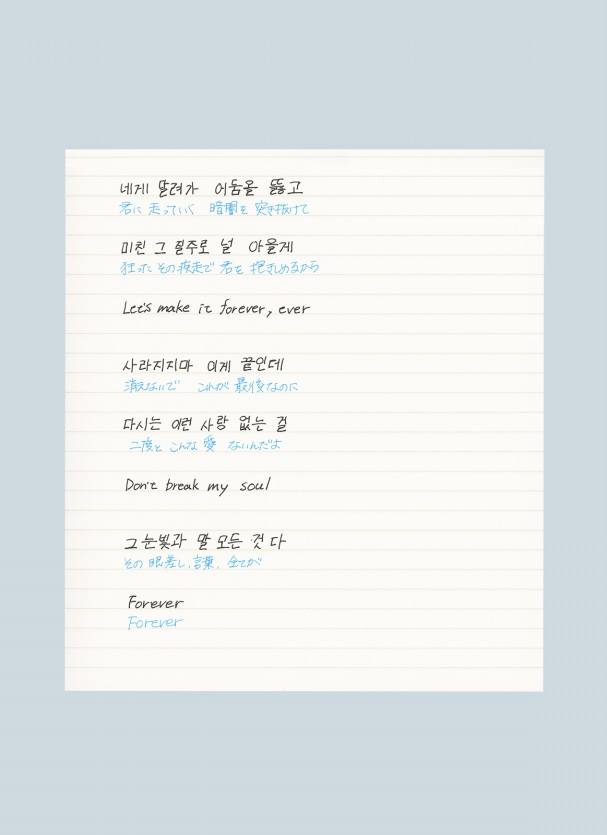 네게 달려가 어둠을 뚫고
君に 走っていく 暗闇を 突き抜けて
미친 그 질주로 널 아울게
狂った その疾走で 君を 抱きしめるから
Let's make it forever, ever
사라지지마 이게 끝인데
消えないで これが 最後なのに
다시는 이런 사랑 없는 걸
二度と こんな 愛 ないんだよ
Don't break my soul
그 눈빛과 말 모든 것 다
その 眼差し、言葉、全てが
Forever
Forever